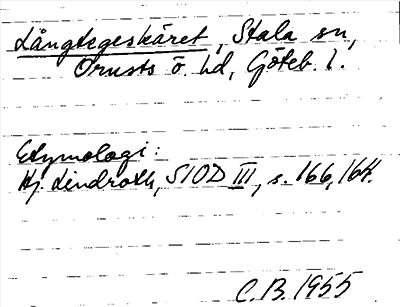 Långtegeskäret, Stala sn,
Orusts ö. hd, Göteb. l.
Etymologi:
Hj. Lindroth, SIOD III, s. 166, 164.
C.B. 1955